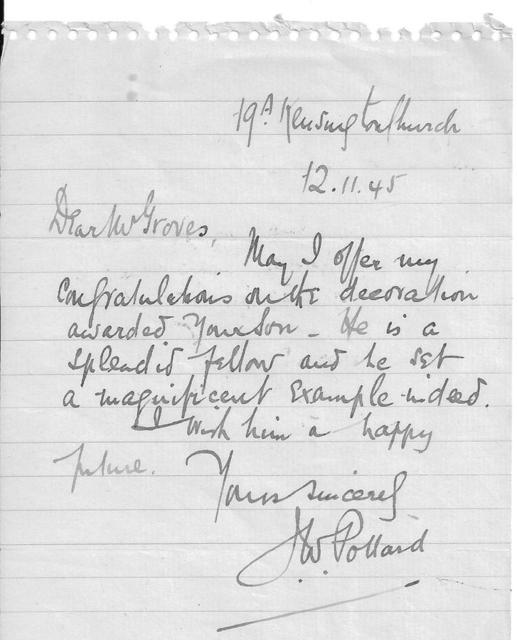 19A Kensington Church
12.11.45
Dear Mr Groves,
May I offer my
Congratulations on the decoration
awarded Your Son - He is a
splendid fellow and he set
a magnificent Example indeed.
I wish him a happy
future.
Yours sincerely
J.W. Pollard